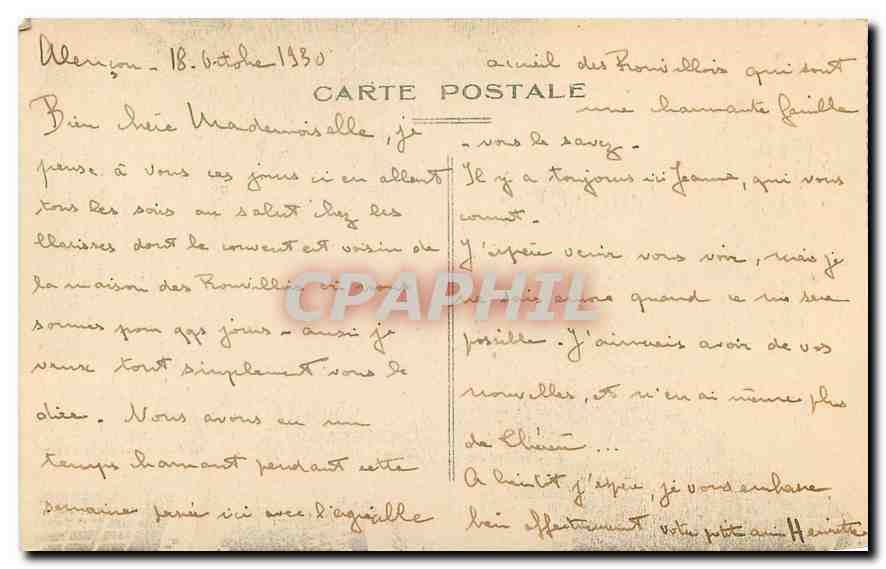 Alençon - 18 Octobre 1930
CARTE POSTALE
Bien chère Mademoiselle, je
pense à vous ces jours ci en allant
tous les soirs au salut chez les
Clarisses dont le couvent est voisin de
la maison des Rouvillois où nous
sommes pour qqs jours - aussi je
veux tout simplement vous le
dire. Nous avons eu un
temps charmant pendant cette
semaine passée ici avec l'agréable
accueil des Rouvillois qui sont
une charmante famille
- vous le savez -
Il y a toujours ici Jeanne, qui vous
connut.
J'espère venir vous voir, mais je
ne sais encore quand ce me sera
possible. J'aimerais avoir de vos
nouvelles, et n'en ai même plus
de ...
A bientôt j'espère, je vous embrasse
bien affectueusement votre petite amie Henriette
CPAPHIL